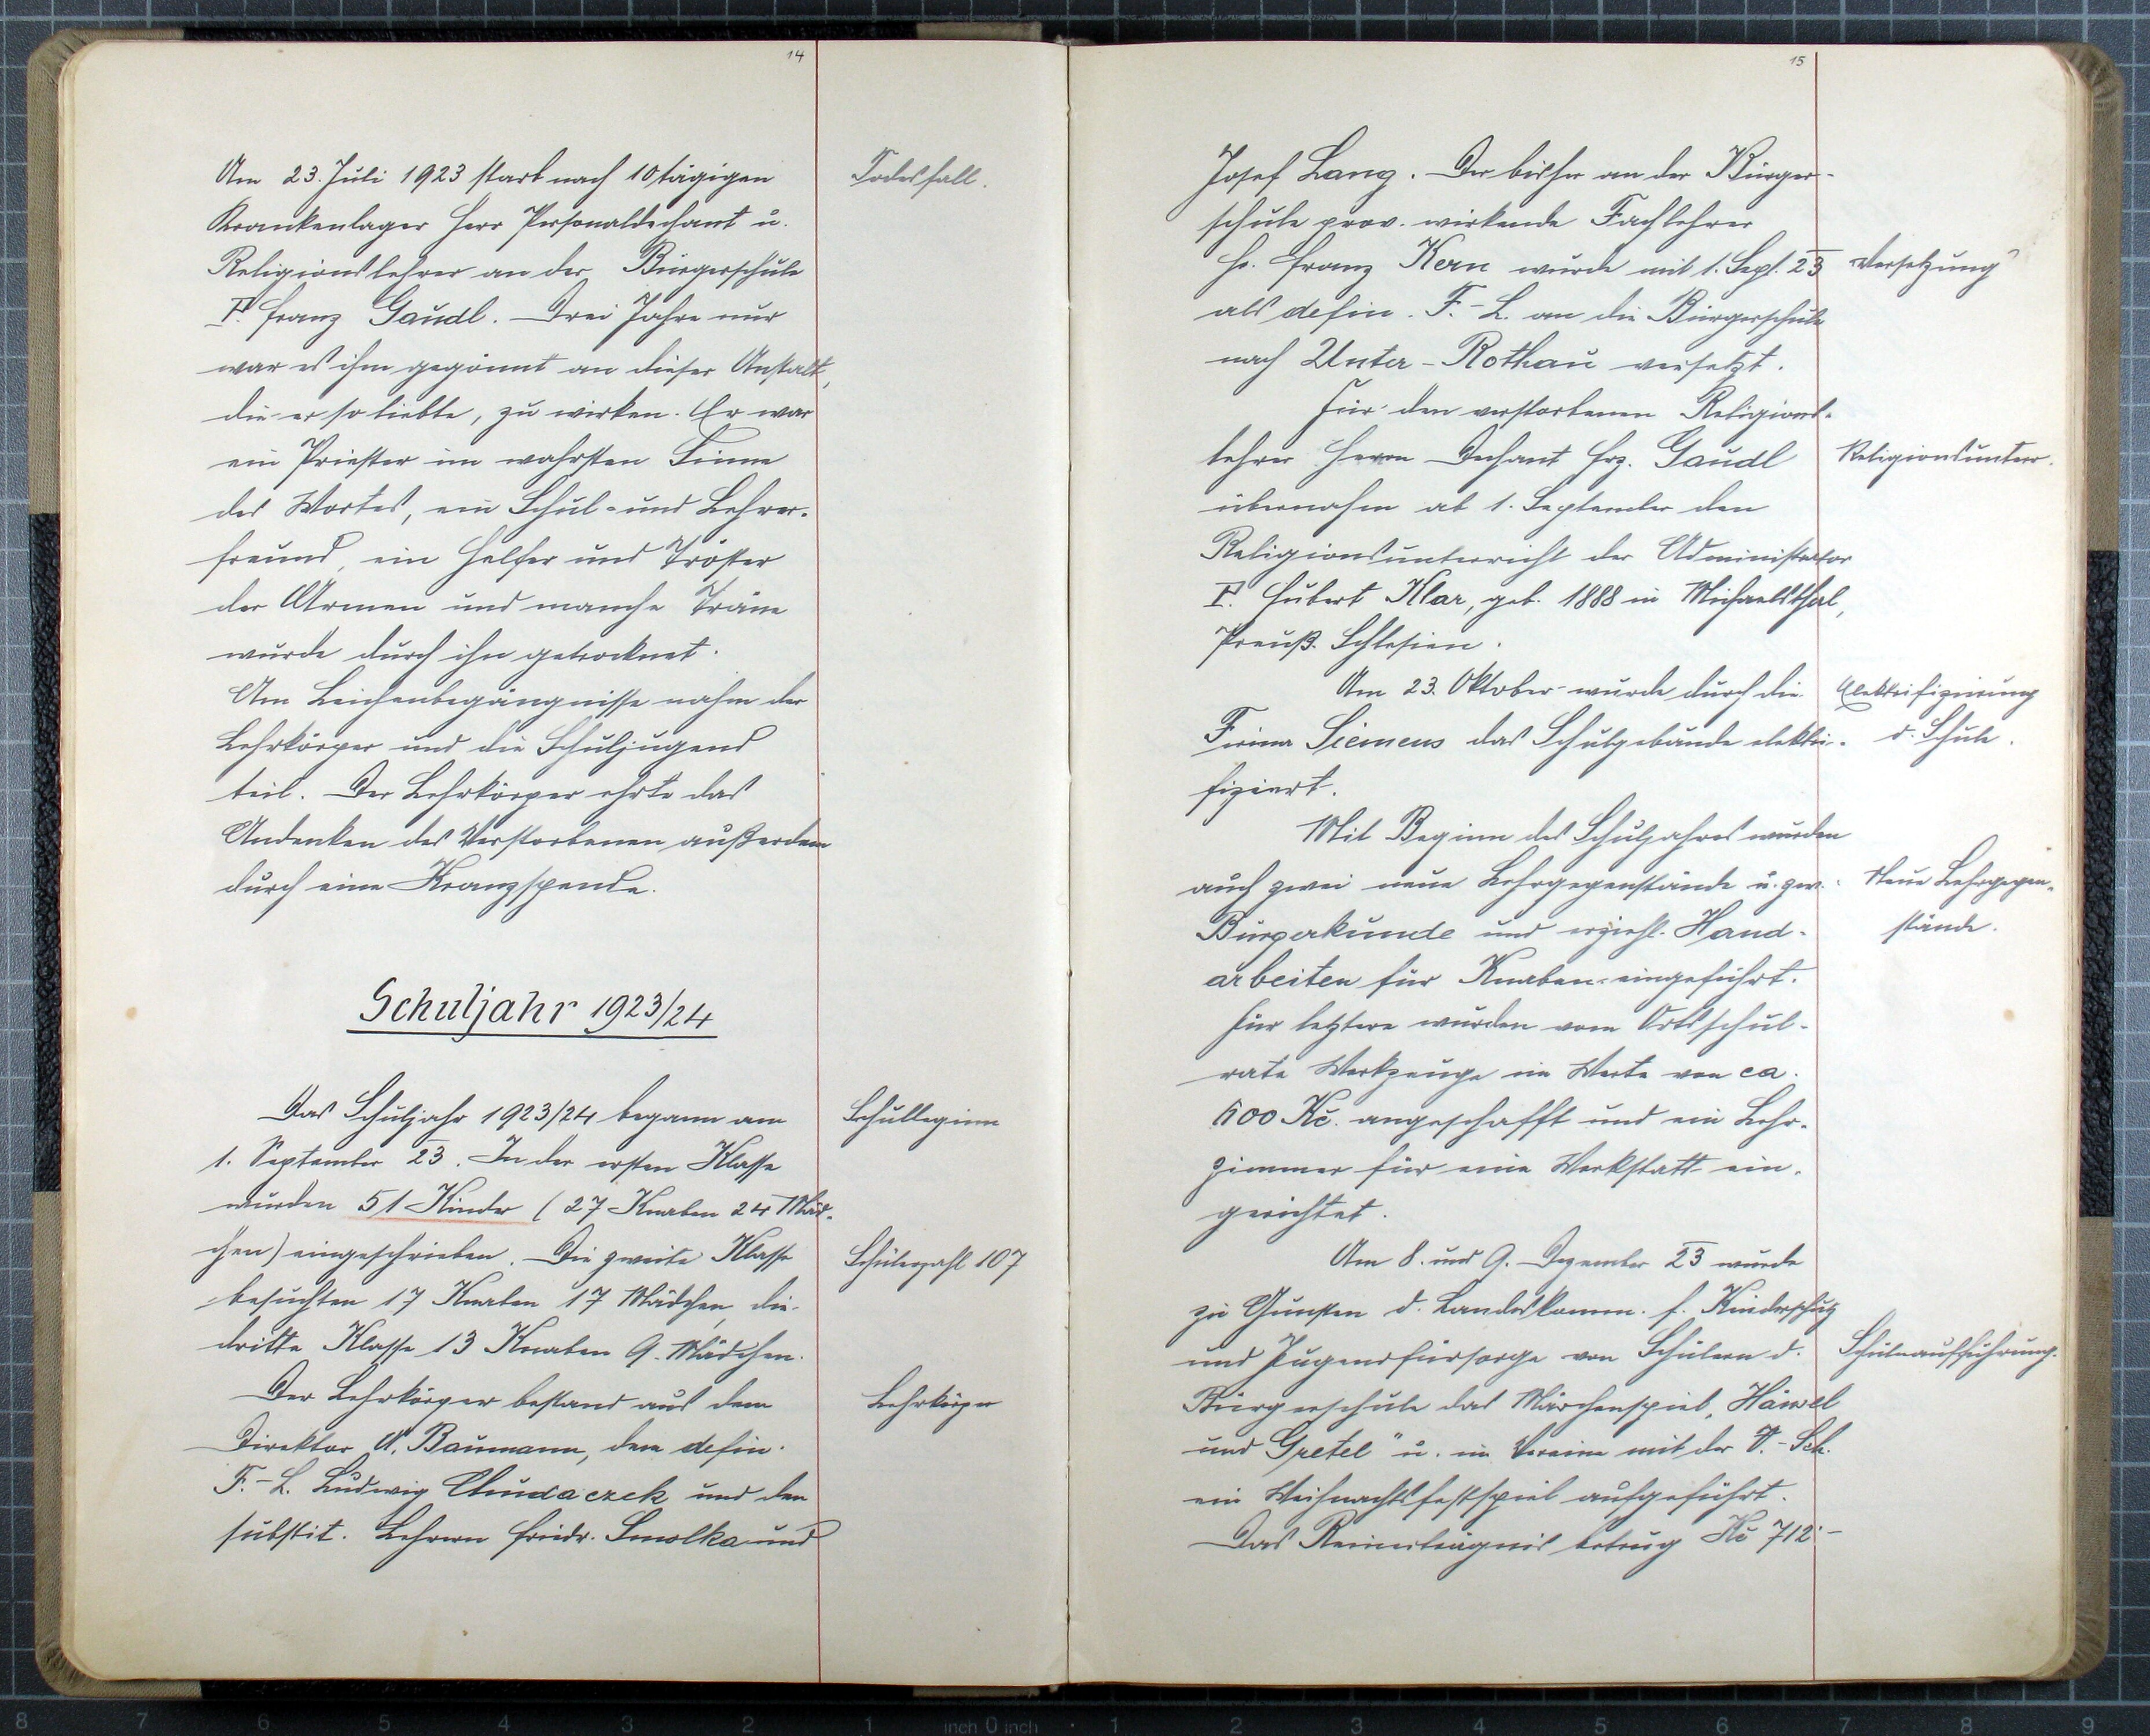 14
Am 23. Juli 1923 starb nach 10tägigen
Todesfall.
Krankenlager Herr Personaldechant u.
Religionslehrer an der Bürgerschule
P. Franz Gaudl. Drei Jahre nur
war es ihm gegönnt an dieser Anstalt,
die er so liebte, zu wirken. Er war
ein Priester im wahrsten Sinne
des Wortes, ein Schul- und Lehrer-
freund, ein Helfer und Tröster
der Armen und manche Träne
wurde durch ihn getrocknet.
Am Leichenbegängnisse nahm der
Lehrkörper und die Schuljugend
teil. Der Lehrkörper ehrte das
Andenken des Verstorbenen außerdem
durch eine Kranzspende.
Schuljahr 1923/24
Das Schuljahr 1923/24 begann am
Schulbeginn
1. September 23. In der ersten Klasse
wurden 51 Kinder (27 Knaben 24 Mäd-
chen) eingeschrieben. Die zweite Klasse
Schülerzahl 107
besuchten 17 Knaben 17 Mädchen, die
dritte Klasse 13 Knaben 9 Mädchen.
Der Lehrkörper bestand aus dem
Lehrkörper
Direktor A. Baumann, dem defin.
F.-L. Ludwig Chudaczek und den
substit. Lehrern Friedr. Smolka und
15
Josef Lang. Der bisher an der Bürger-
schule prov. wirkende Fachlehrer
Hr. Franz Kern wurde mit 1. Sept. 23
Versetzung
als defin. F.-L. an die Bürgerschule
nach Unter-Rothau versetzt.
Für den verstorbenen Religions-
lehrer Herrn Dechant Frz. Gaudl
Religionsunterr.
übernahm ab 1. September den
Religionsunterricht der Administrator
P. Hubert Klar, geb. 1888 in Michaelsthal,
Preuß. Schlesien.
Am 23. Oktober wurde durch die
Elektrifizierung
Firma Siemens das Schulgebäude elektri-
d. Schule.
fiziert.
Mit Beginn des Schuljahres wurden
auch zwei neue Lehrgegenstände u. zw.:
Neue Lehrgegen-
Bürgerkunde und erziehl. Hand-
stände.
arbeiten für Knaben eingeführt.
Für letztere wurden vom Ortsschul-
rate Werkzeuge im Werte von ca.
Kč. angeschafft und ein Lehr-
zimmer für eine Werkstatt ein-
gerichtet.
Am 8. und 9. Dezember 23 wurde
zu Gunsten d. Landeskomm. f. Kinderschutz
und Jugendfürsorge von Schülern d.
Schüleraufführung.
Bürgerschule das Märchenspiel „Hänsel
und Gretel" u. im Vereine mit der V.-Sch.
ein Weihnachtsfestspiel aufgeführt.
Das Reinerträgnis betrug Kč 712·-
8 7 6 5 4 3 2 1 inch 0 inch 1 2 3 4 5 6 7 8 9